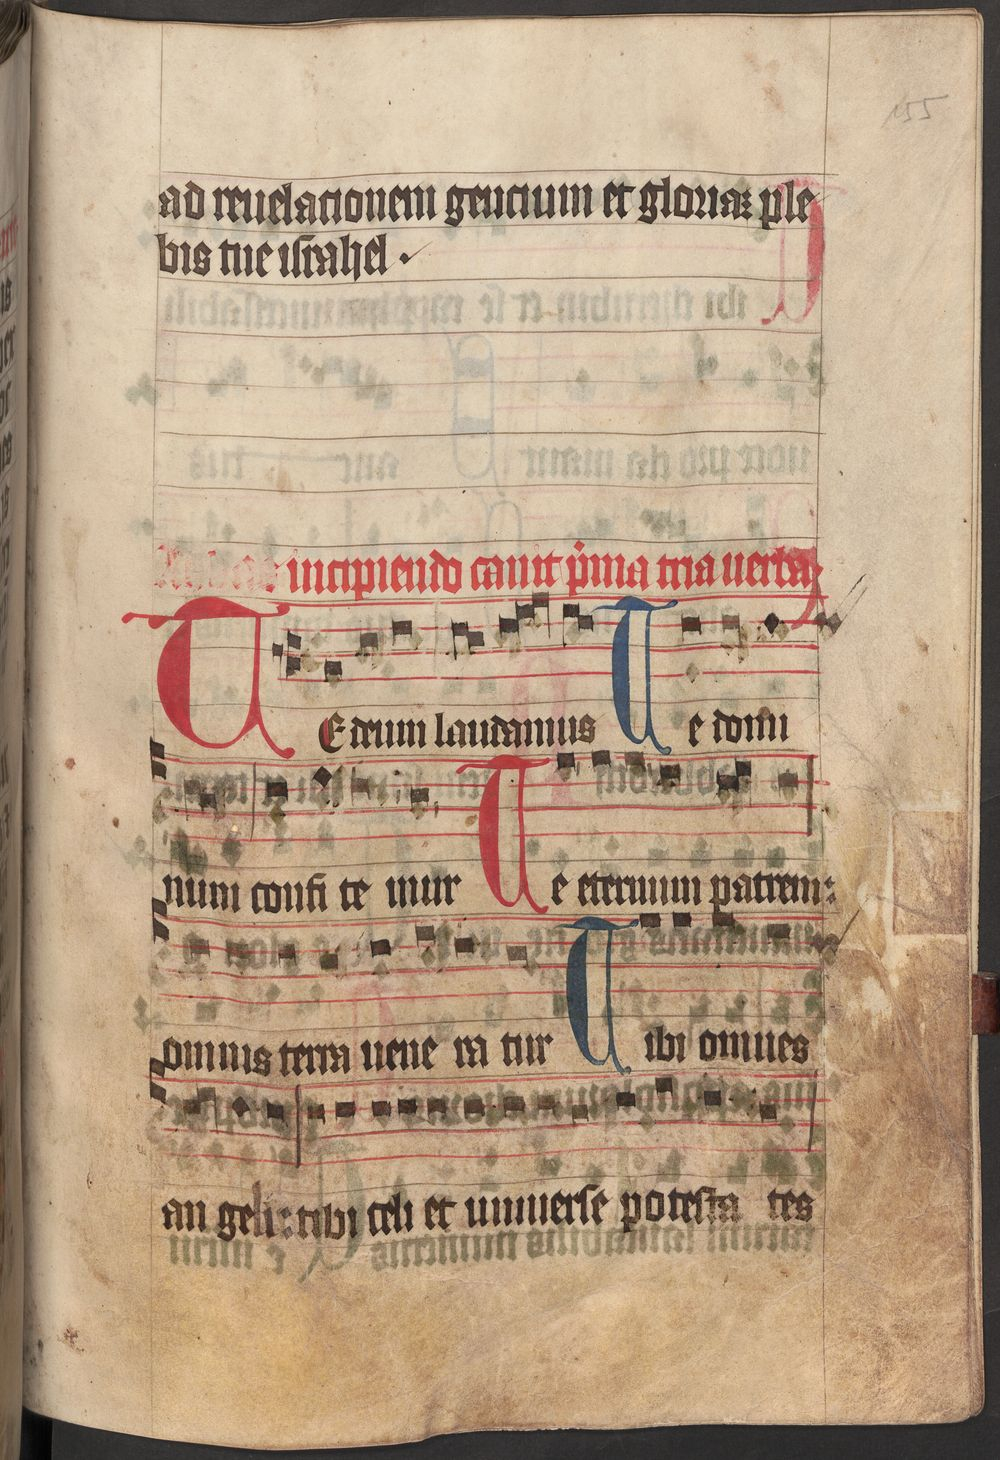 155
ad reuelacionem gencium et gloriaꝫ ple
bis tue israhel .
incipiendo canit pͥma tria uerba
TE deum laudamus Te domi
num confi te mur Te eternum patrem:
omnis terra uene ra tur Tibi omnes
an geli: tibi celi et uniuerse potesta tes